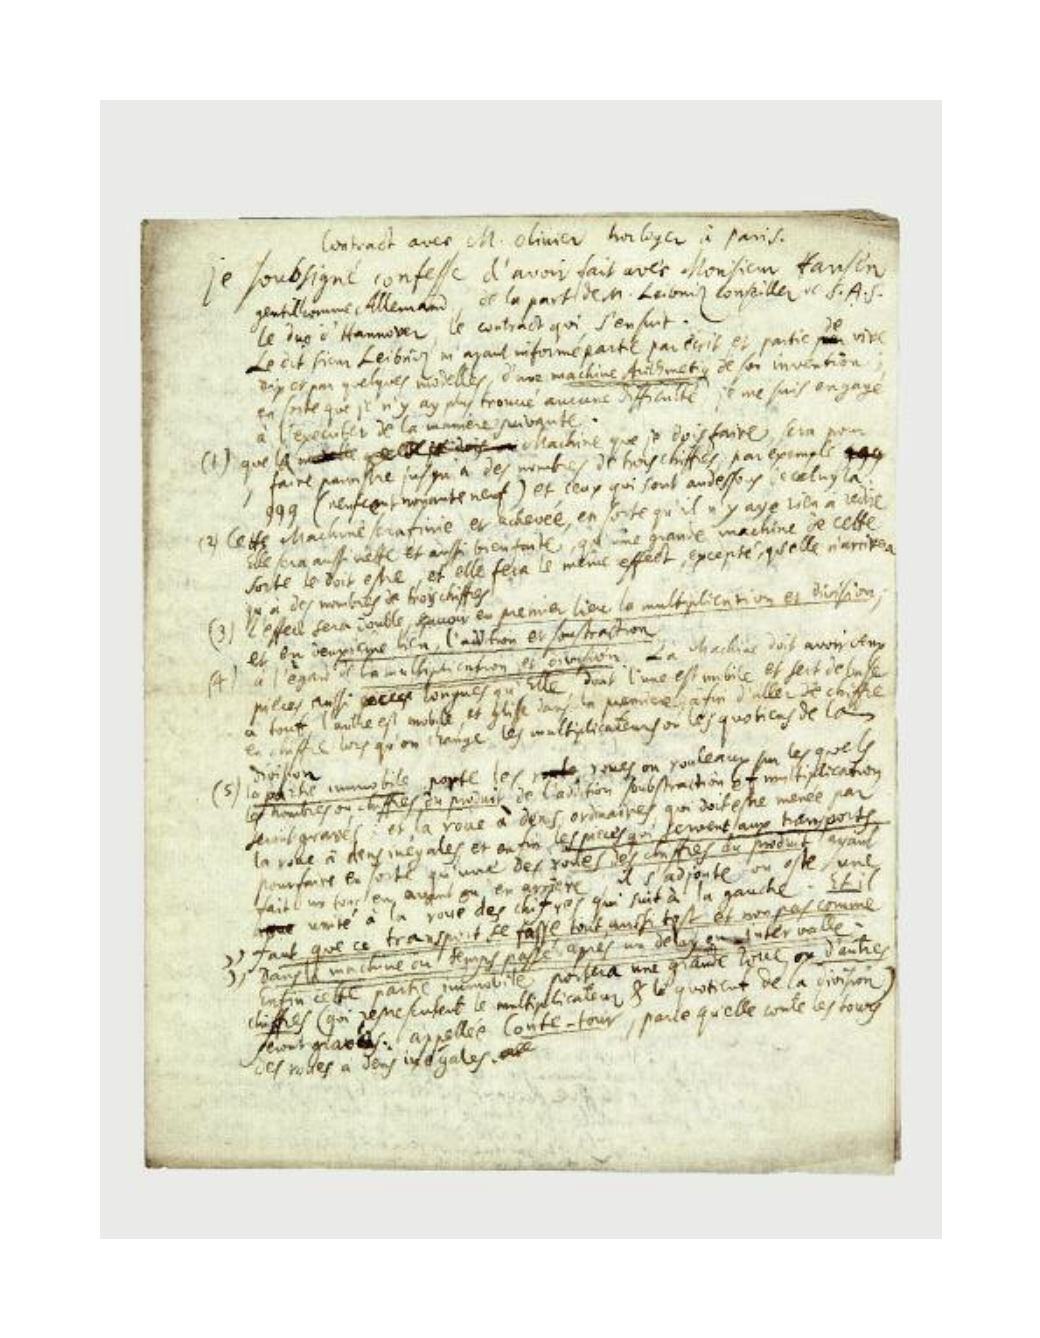 Contract avec M. Olivier horloger à Paris.
je soubsigné confesse d'avoir fait avec Monsieur Hansen
gentilhomme Allemand, de la part de M. Leibniz conseiller de S.A.S.
le duc d'Hannover, le contract qui s'ensuit.
Le dit sieur Leibniz m'ayant informé partie par écrit et partie de vive
et par quelques modelles, d'une machine Arithmetiq de son invention;
en sorte que je n'y ay plus trouvé aucune difficulté, je me suis engagé
à l'executer de la maniere suivante.
(1) que la Machine que je dois faire, sera pour
faire paroistre jusqu'à des nombres de trois chiffres, par exemple
999 (neufcent nonante neuf) et ceux qui sont audessous de celuy la.
(2) Cette Machine sera finie et achevée, en sorte qu'il n'y aye rien à redire
Elle sera aussi nette et aussi bienfaite, qu'une grande machine de cette
sorte le doit estre, et elle fera le même effect, excepté, qu'elle n'arrivera
qu'à des nombres de trois chiffres
(3) L'effect sera double, savoir en premier lieu la multiplication et division;
et en deuxieme lieu, l'addition et soustraction
(4) à l'égard de la multiplication et division. La Machine doit avoir deux
pieces aussi longues qu'Elle, dont l'une est immobile et sert de base
a tout, l'autre est mobile, et glisse dans la premiere, afin d'aller de chiffre
en chiffre lors qu'on change les multiplicateurs ou les quotiens de la
division
(5) la partie immobile porte les roues ou rouleaux sur les quels
les nombres ou chiffres du produit de l'addition soubstraction et multiplication
seront gravés; et la roue à dens ordinaires, qui doit estre menée par
la roue à dens inégales et enfin les pieces qui servent aux transports
pour faire en sorte qu'une des roues des chiffres du produit ayant
fait un tour en avant ou en arriere il s'adjoute ou oste une
unité à la roue des chiffres qui suit à la gauche. Et il
faut que ce transport se fasse tout aussi tost et non pas comme
Dans la machine du temps passé apres un delay ou intervalle.
Enfin cette partie immobile portera une grande roue, ou d'autres
chiffres (qui representent le multiplicateur & le quotient de la division)
seront gravés. appellée Conte-tour, parce qu'elle conte les tours
des roues a dens inégales.